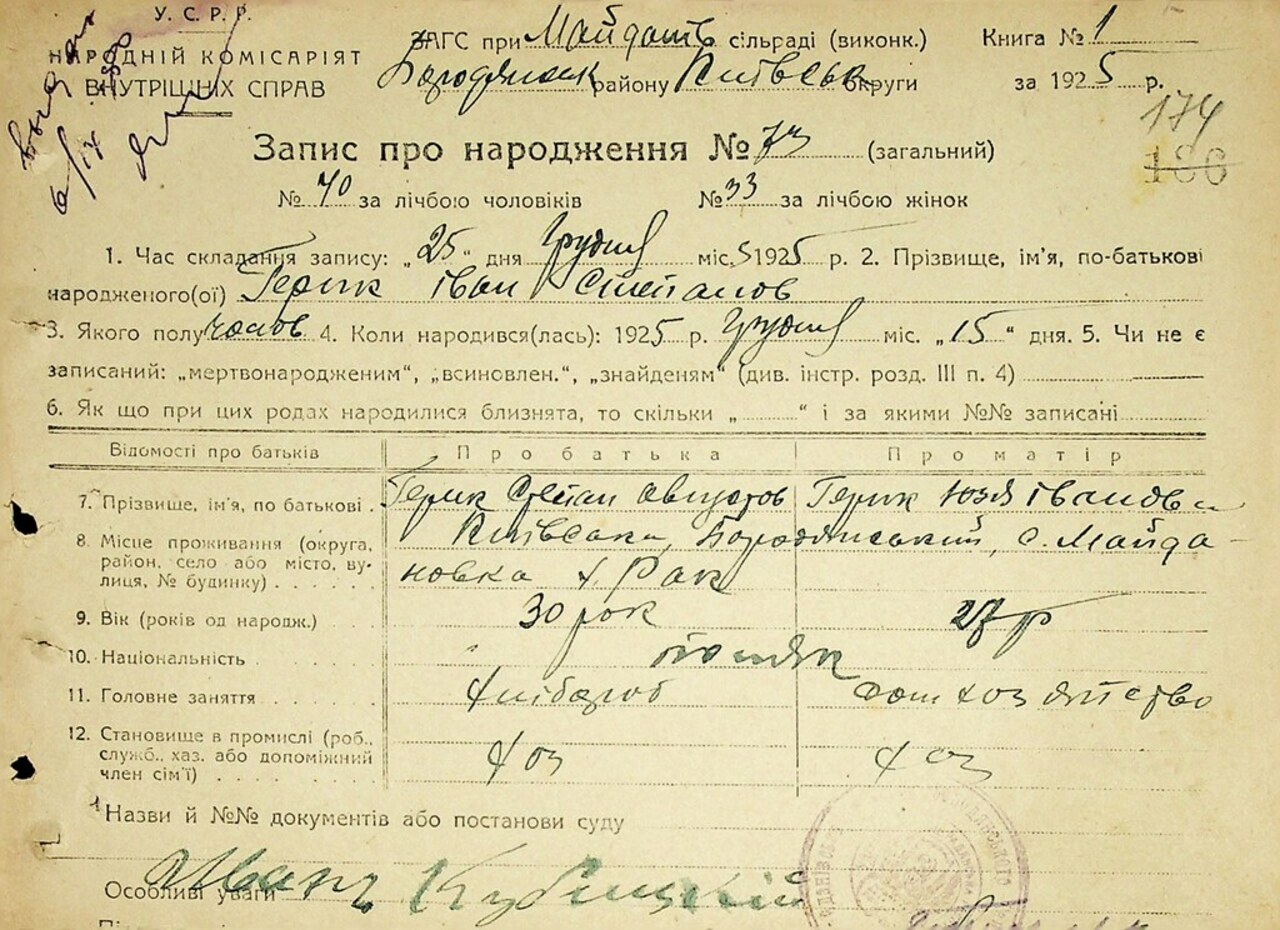 У. С. Р. Р.
НАРОДНІЙ КОМІСАРІЯТ
ВНУТРІШНІХ СПРАВ
ЗАГС при Майданів сільраді (виконк.)
Бородянськ району Київськ округи
Книга № 1
за 1925 р.
174
186
Запис про народження № 73 (загальний)
№ 40 за лічбою чоловіків № 33 за лічбою жінок
1. Час складання запису: „25“ дня Грудня міс. 1925 р. 2. Прізвище, ім'я, по-батькові
народженого(ої) Герик Іван Степанов
3. Якого полу чолов 4. Коли народився(лась): 1925 р. Грудня міс. „15“ дня. 5. Чи не є
записаний: „мертвонародженим“, „всиновлен.“, „знайденям“ (див. інстр. розд. III п. 4)
6. Як що при цих родах народилися близнята, то скільки „ “ і за якими №№ записані
Відомості про батьків Про батька Про матір
7. Прізвище, ім'я, по батькові . Герик Степан Августов Герик Юзя Іванов
8. Місце проживання (округа, район, село або місто, вулиця, № будинку) Київська, Бородянський, с. Майда-
новка х. Рак
9. Вік (років од народж.) 30 рок 27 р
10. Національність поляк
11. Головне заняття Хлібороб дом хозяйство
12. Становище в промислі (роб., служб., хаз. або допоміжний член сім'ї) Хоз Хоз
Назви й №№ документів або постанови суду
Особливі уваги Иванъ Кубіцкій